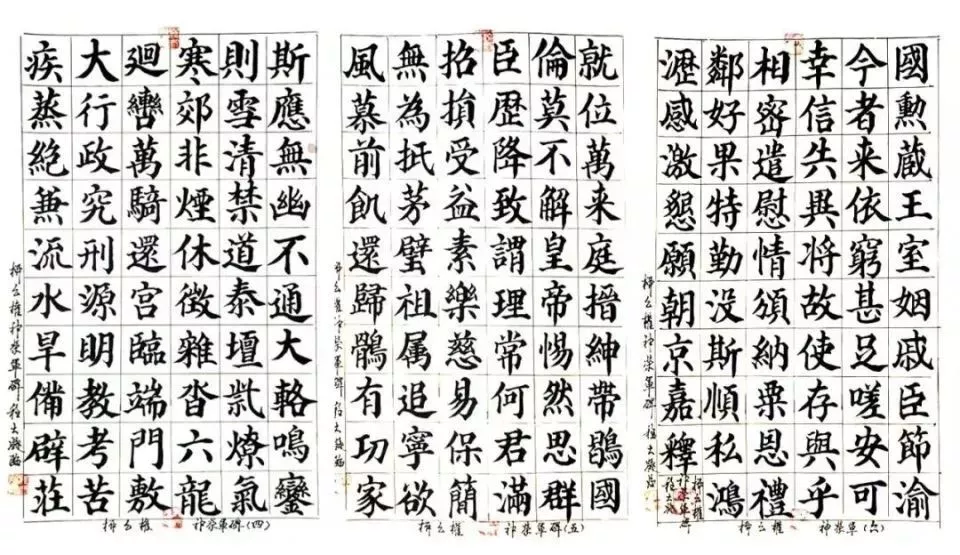 斯應無幽不通大輅鳴鑾
則雪清禁道泰壇祡燎氣
寒郊非煙休徵雜沓六龍
廻轡萬騎還宮臨端門敷
大行政究刑源明教考苦
疾蒸絕兼流水旱備辟莊
柳公權神策軍碑
柳公權 神策軍碑(四)
就位萬来庭搢紳帶鵾國
倫莫不解皇帝惕然思群
臣歷降致謂理常何君滿
招損受益素樂慈易保簡
無為扺茅璧祖属追寧欲
風慕前飢還歸鶻有功家
柳公權神策軍碑
柳公權 神策軍碑(五)
國勲蔵王室姻戚臣節渝
今者来依窮甚足嗟安可
幸信失異将故使存與乎
相密遣慰情頒納粟恩禮
鄰好果特勤没斯順私鴻
瀝感激懇願朝京嘉釋
柳公權神策軍碑
柳公權 神策軍(六)